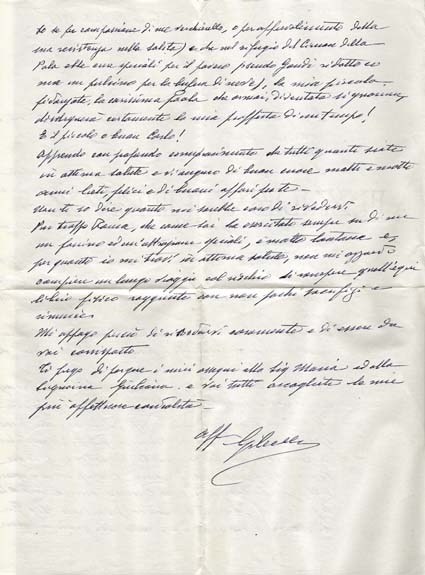 so se per compassione di me vecchietto, o per affievolimento della
sua resistenza nelle salite) e che nel rifugio del Cervan della
Pala ebbe cure speciali per il povero
ma un pulcino per la bufera di neve), la mia piccola
fidanzata, la carissima Paola che ormai, diventata signorina,
disdegnerà certamente la mia profferta di un tempo!
E il piccolo e buon Carlo!
Apprendo con profondo compiacimento che tutti quanti siate
in ottima salute e vi auguro di buon cuore molti e molti
anni lieti, felici e di buoni affari
Non ti so dire quanto mi sarebbe caro di rivedervi.
Purtroppo Roma, che come sai ha esercitato sempre su di me
un fascino ed un'attrazione speciali, è molto lontana e,
per quanto io mi trovi in ottima salute, non mi azzardo
compiere un lungo viaggio col rischio di rompere quell'equi
librio fisico raggiunto con non pochi sacrifizi e
rinuncie.
Mi appago perciò di ricordarvi caramente e di essere da
voi
Ti prego di porgere i miei ossequi alla Sig. Maria ed alla
Signorina Giuliana e voi tutti accogliete le mie
più affettuose cordialità
aff